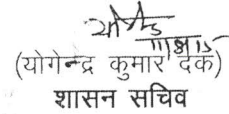 (योगेन्द्र कुमार दक)
शासन सचिव